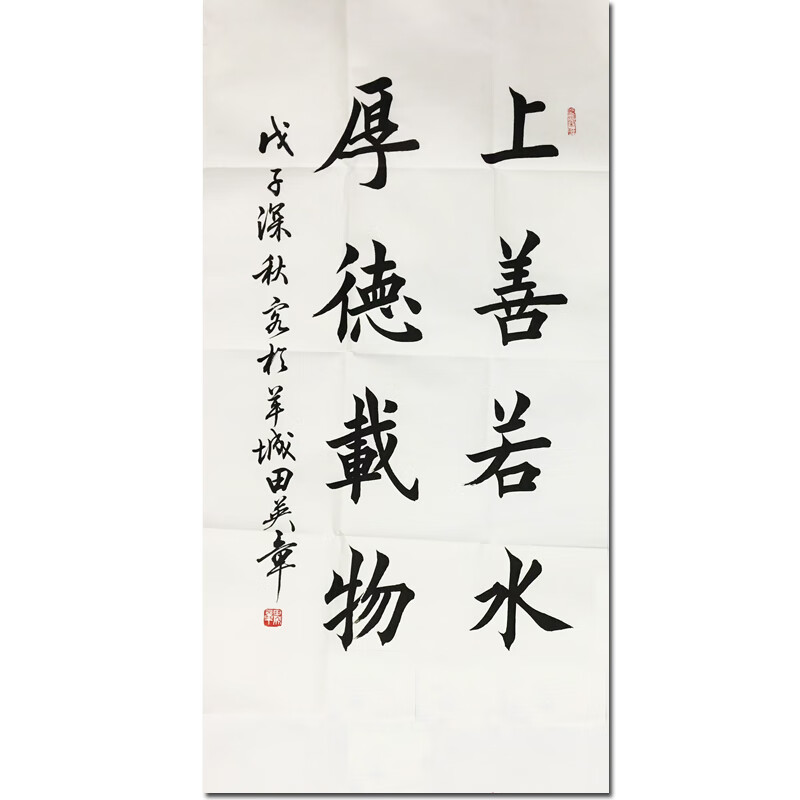 上善若水
厚德載物
戊子深秋客於羊城田英章